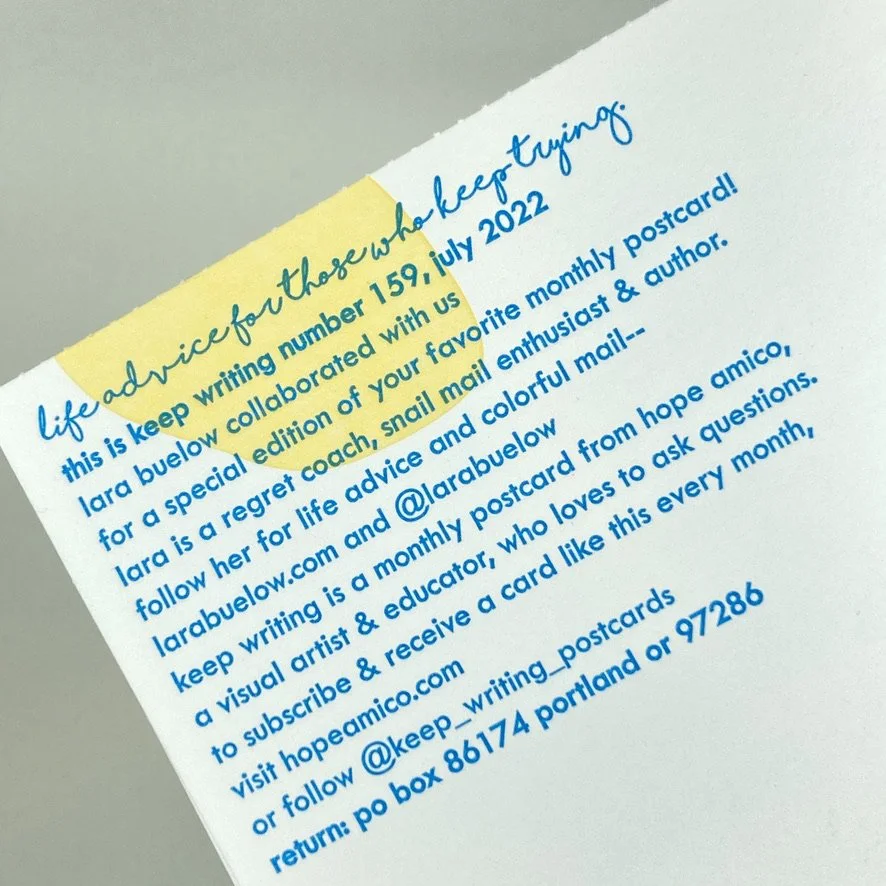 life advice for those who keep trying.
this is keep writing number 159, july 2022
lara buelow collaborated with us
for a special edition of your favorite monthly postcard!
lara is a regret coach, snail mail enthusiast & author.
follow her for life advice and colorful mail--
larabuelow.com and @larabuelow
keep writing is a monthly postcard from hope amico,
a visual artist & educator, who loves to ask questions.
to subscribe & receive a card like this every month,
visit hopeamico.com
or follow @keep_writing_postcards
return: po box 86174 portland or 97286